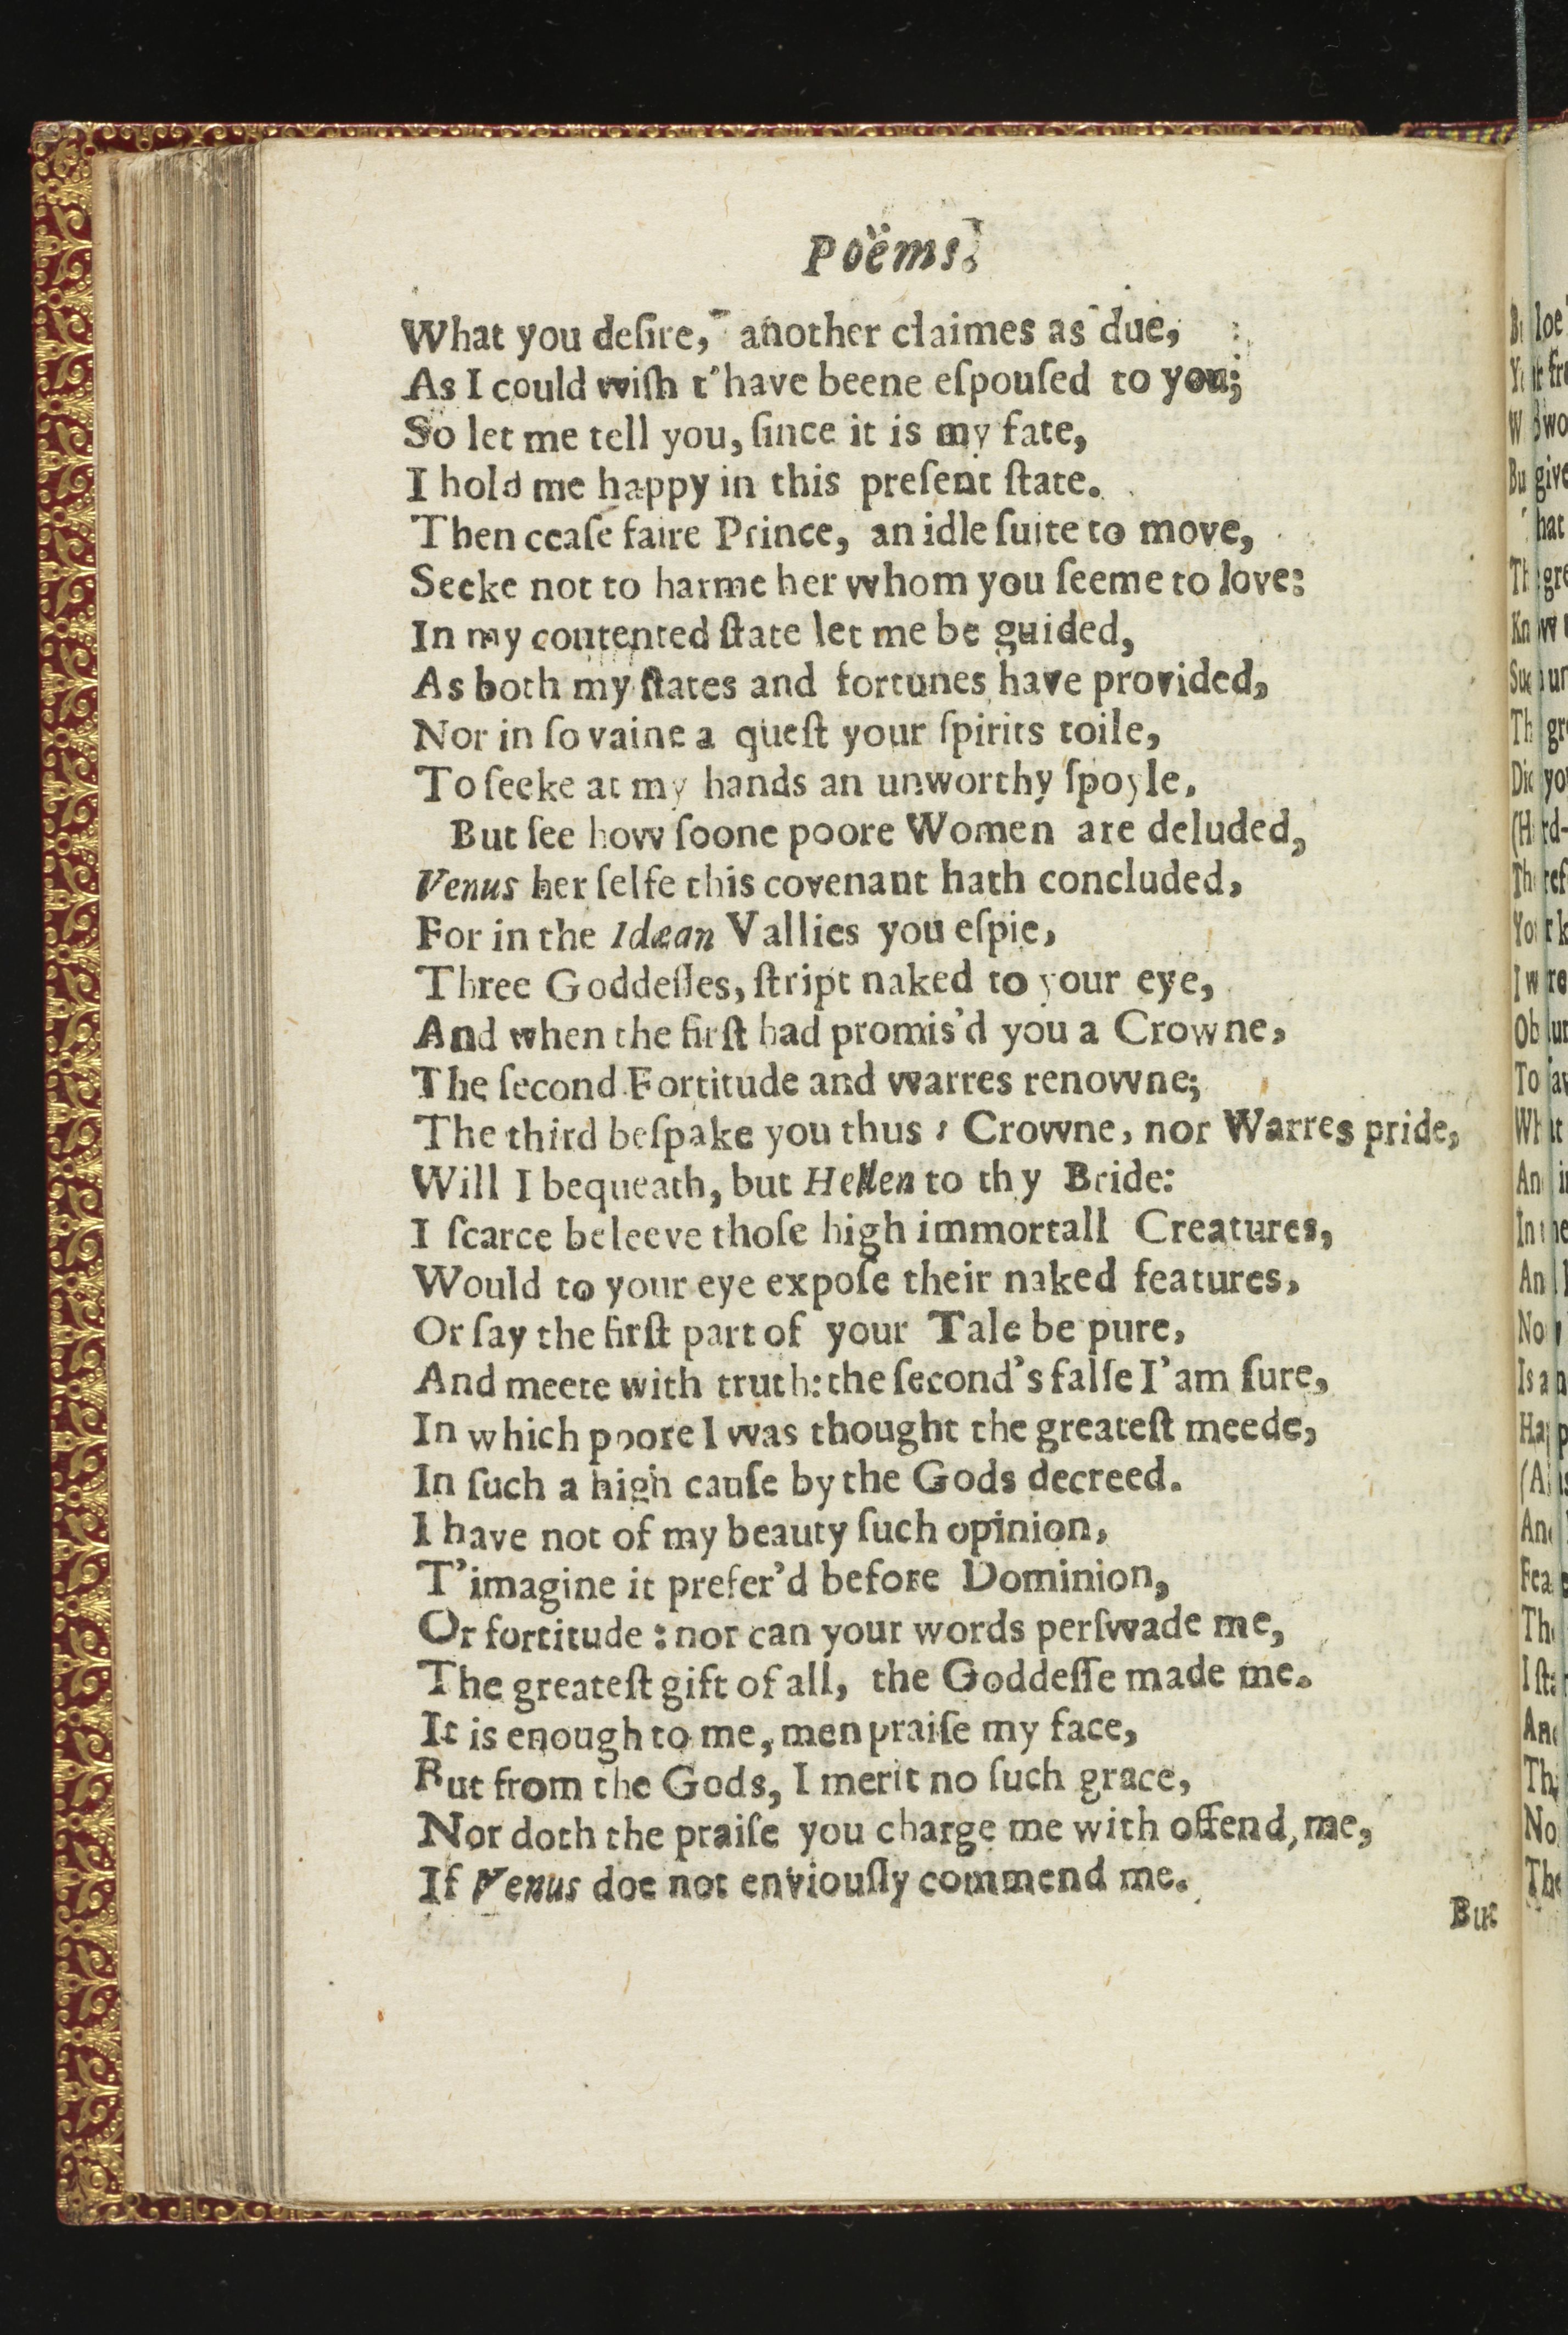 Poëms.
What you deſire, another claimes as due,
As I could wiſh t'have beene eſpouſed to you;
So let me tell you, ſince it is my fate,
I hold me happy in this preſent ſtate.
Then ceaſe faire Prince, an idle ſuite to move,
Seeke not to harme her whom you ſeeme to love:
In my contented ſtate let me be guided,
As both my ſtates and fortunes have provided,
Nor in ſo vaine a queſt your ſpirits toile,
To ſeeke at my hands an unworthy ſpoyle,
But ſee how ſoone poore Women are deluded,
Venus her ſelfe this covenant hath concluded,
For in the Idæan Vallies you eſpie,
Three Goddeſſes, ſtript naked to your eye,
And when the firſt had promis'd you a Crowne,
The ſecond Fortitude and warres renowne;
The third beſpake you thus : Crowne, nor Warres pride,
Will I bequeath, but Hellen to thy Bride:
I ſcarce beleeve thoſe high immortall Creatures,
Would to your eye expoſe their naked features,
Or ſay the firſt part of your Tale be pure,
And meete with truth: the ſecond's falſe I'am ſure,
In which poore I was thought the greateſt meede,
In ſuch a high cauſe by the Gods decreed.
I have not of my beauty ſuch opinion,
T'imagine it prefer'd before Dominion,
Or fortitude : nor can your words perſwade me,
The greateſt gift of all, the Goddeſſe made me.
It is enough to me, men praiſe my face,
But from the Gods, I merit no ſuch grace,
Nor doth the praiſe you charge me with offend, me,
If Venus doe not enviouſly commend me.
But